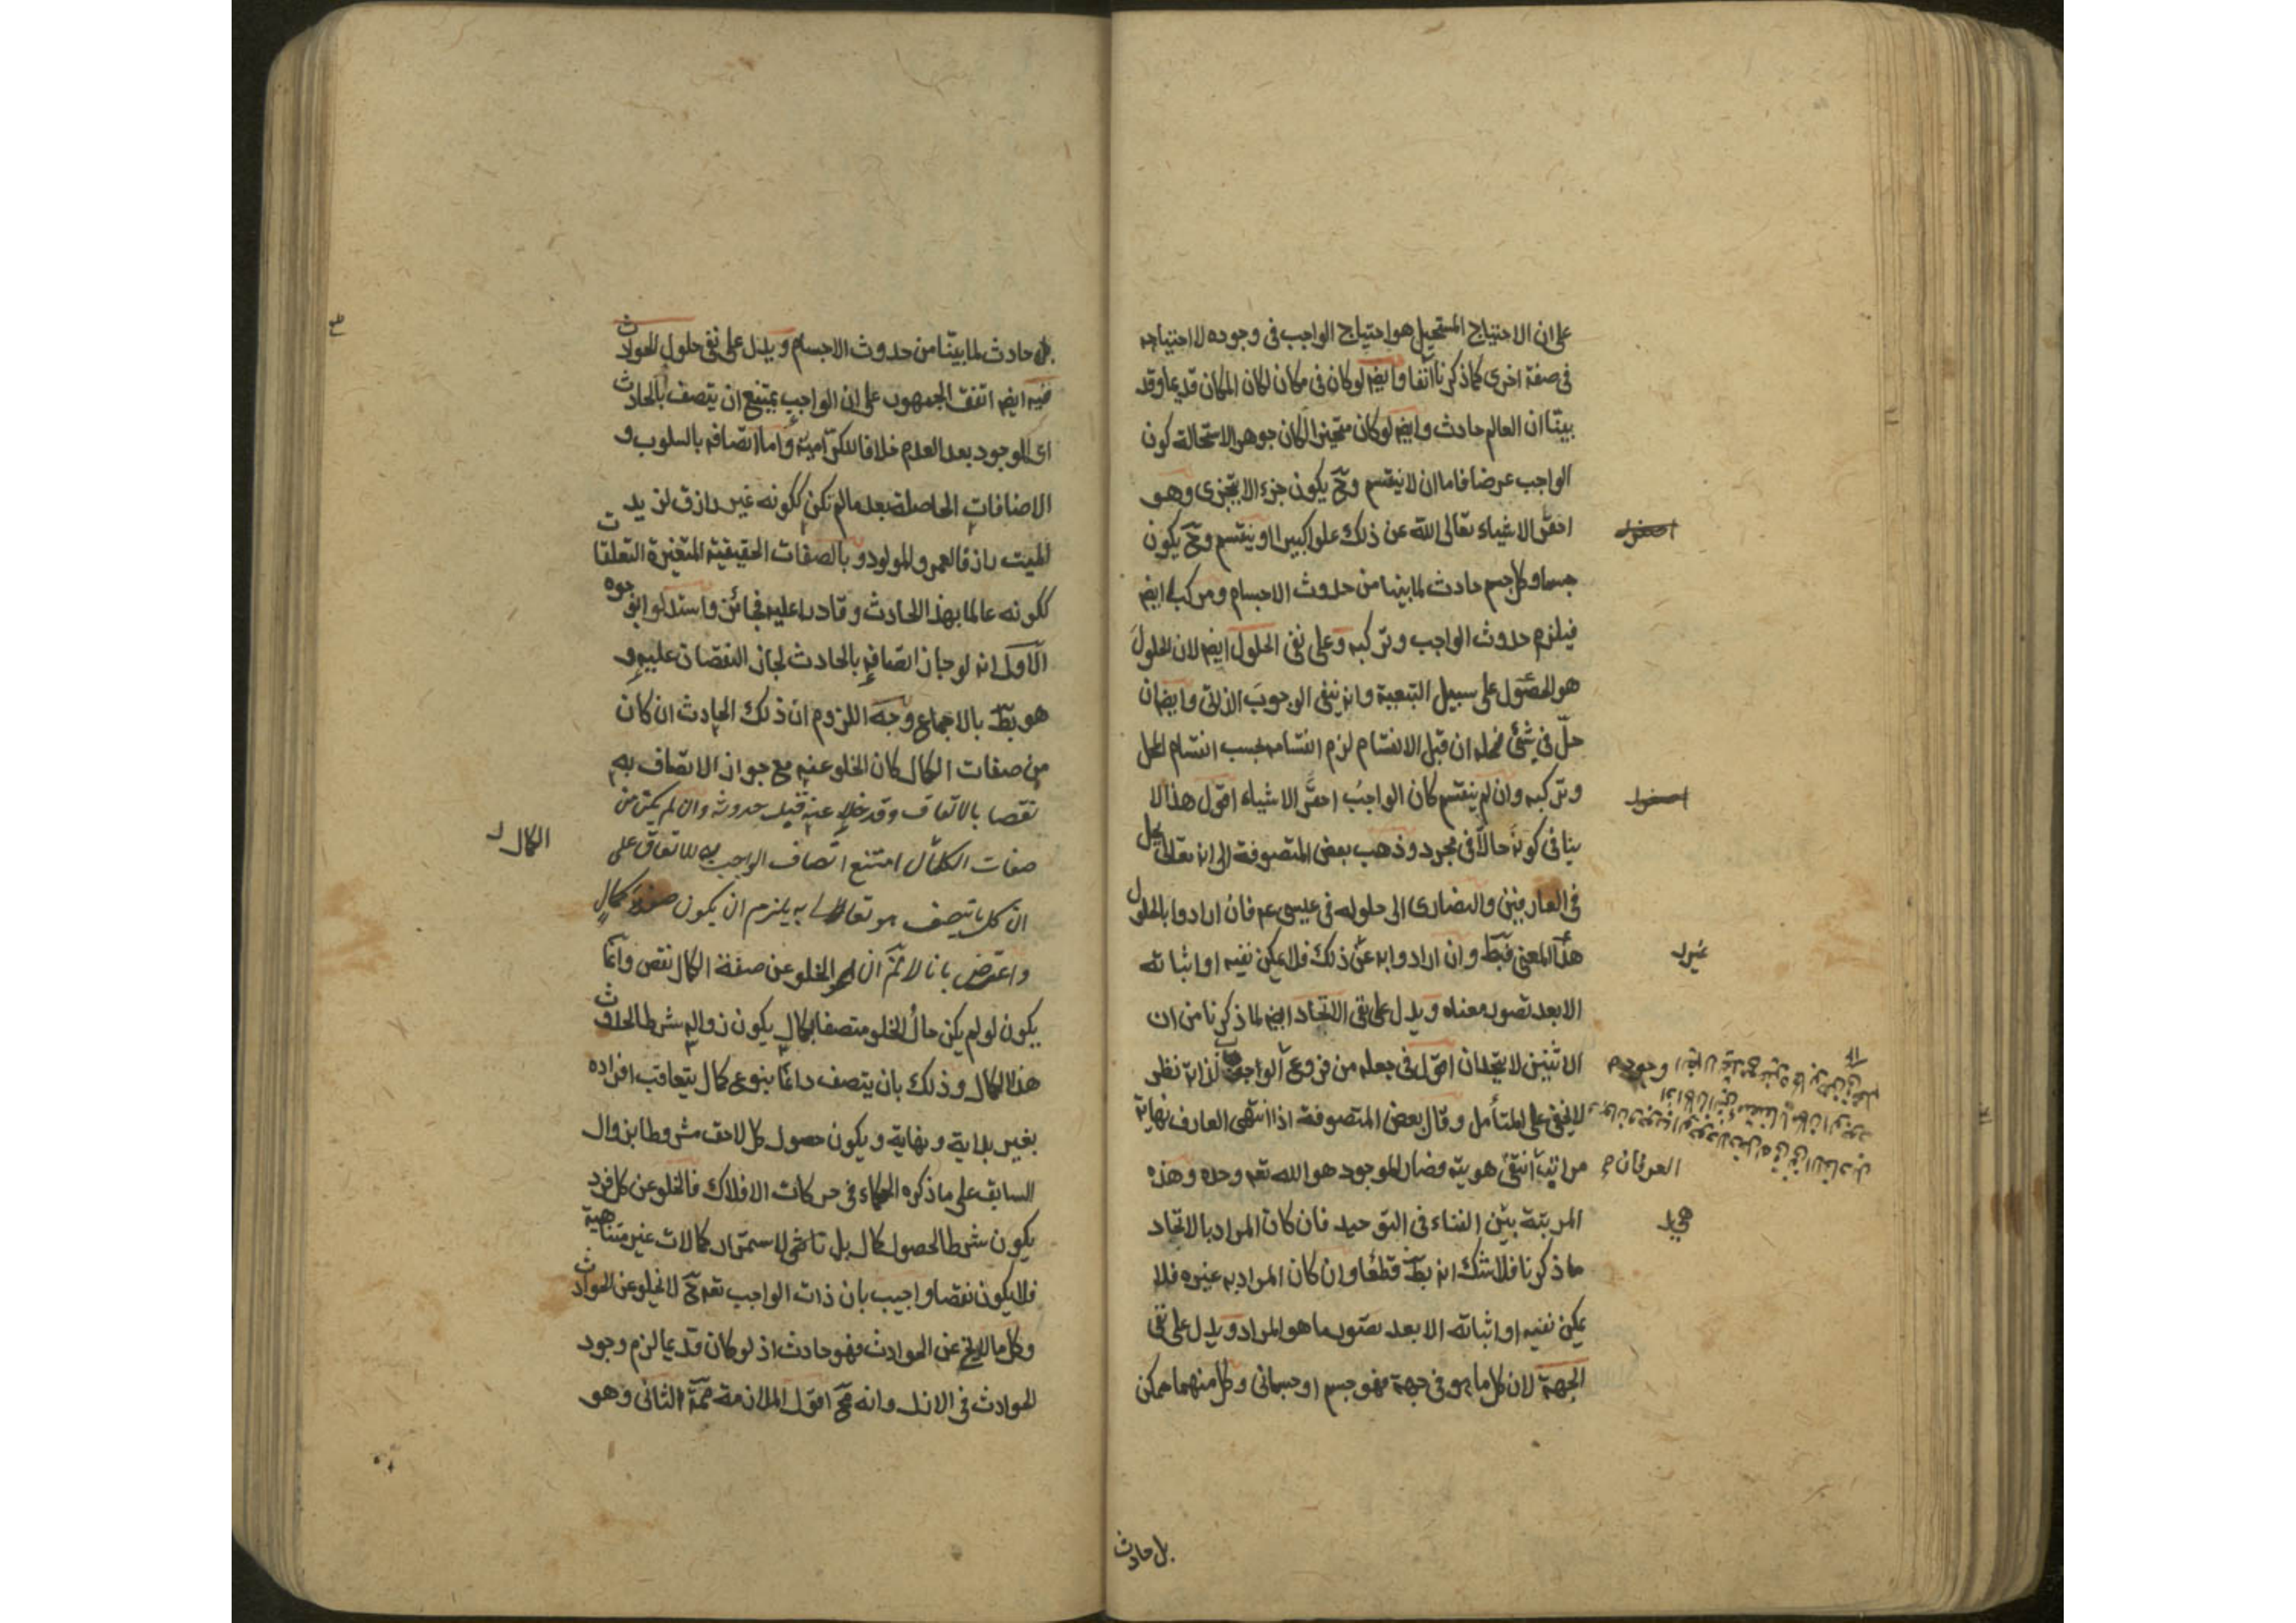 على ان الاحتياج المستحيل هو احتياج الواجب فى وجوده لا احتياجه
فى صفة اخرى كما ذكرنا آنفا وايضم لو كان فى مكان لكان المكان قديما وقد
بيّنا ان العالم حادث وايضم لو كان متحيزا لكان جوهرا لاستحالة كون
الواجب عرضا فاما ان لا ينقسم وحّ يكون جزء لا يتجزى وهو
احقر الاشياء تعالى الله عن ذلك علوا كبيرا او ينقسم وحّ يكون
جسما وكل جسم حادث لما بينا من حدوث الاجسام ومركب ايضم
فيلزم حدوث الواجب وتركبه وعلى نفى الحلول ايضم لان الحلول
هو الحصول على سبيل التبعية وانه ينفى الوجوب الذاتى وايضم ان
حلّ فى شئ فمحله ان قبل الانقسام لزم انقسامه بحسب انقسام المحل
وتركبه وان لم ينقسم كان الواجب احقر الاشياء اقول هذا لا
ينافى كونه حالّا فى مجرد وذهب بعض المتصوفة الى انه تعالى يحل
فى العارفين والنصارى الى حلوله فى عيسى عم فان ارادوا بالحلول
هذا المعنى فبط وان ارادوا به غير ذلك فلا يمكن نفيه او اثباته
الا بعد تصور معناه ويدل على نفى الاتحاد ايضم لما ذكرنا من ان
الاثنين لا يتحدان اقول فى جعله من فروع الواجب لذاته نظر
لا يخفى على المتأمل وقال بعض المتصوفة اذا انتهى العارف نهاية
مراتب انتفى هويته وصار الموجود هو الله تعم وحده وهذه
العرفان
المرتبة بين الفناء فى التوحيد فان كان المراد بالاتحاد
ما ذكرنا فلا شك انه بط قطعا وان كان المراد به غيره فلا
يمكن نفيه او اثباته الا بعد تصور ما هو المراد ويدل على نفى
الجهة لان كل ما هو فى جهة فهو جسم او جسمانى وكل منهما ممكن
بل حادث
بل حادث لما بينا من حدوث الاجسام ويدل على نفى حلول الحوادث
فيه ايضم اتفق الجمهور على ان الواجب يمتنع ان يتصف بالحادث
اى الموجود بعد العدم خلافا للكرّامية واما اتصافه بالسلوب و
الاضافات الحاصلة بعد ما لم تكن ككونه غير رازق لزيد
الميت رازقا لعمرو المولود و بالصفات الحقيقية المتغيرة التعلقات
ككونه عالما بهذا الحادث وقادرا عليه فجائز واستدلوا بوجوه
الاول انه لو جاز اتصافه بالحادث لجاز النقصان عليه و
هو بط بالاجماع وجه اللزوم ان ذلك الحادث ان كان
من صفات الكمال كان الخلو عنه مع جواز الاتصاف به
نقصا بالاتفاق وقد خلا عنه قبل حدوثه وان لم يكن من
صفات الكمال امتنع اتصاف الواجب به للاتفاق على
الكمال
ان كل ما يتصف هو تعالى به يلزم ان يكون صفة كمال
واعترض بانا لا نمّ ان الخلو عن صفة الكمال نقص وانما
يكون لو لم يكن حال الخلو متصفا بكمال يكون زواله شرطا لحدوث
هذا الكمال وذلك بان يتصف دائما بنوع كمال يتعاقب افراده
بغير بداية ونهاية ويكون حصول كل لاحق مشروطا بزوال
السابق على ما ذكره الحكماء فى حركات الافلاك فالخلو عن كل فرد
يكون شرطا لحصول كمال بل لاستمرار كمالات غير متناهية
فلا يكون نقصا واجيب بان ذات الواجب تعم حّ لا تخلو عن الحوادث
وكل ما لا يخ عن الحوادث فهو حادث اذ لو كان قديما لزم وجود
الحوادث فى الازل وانه مح اقول الملازمة ممّ الثانى وهو